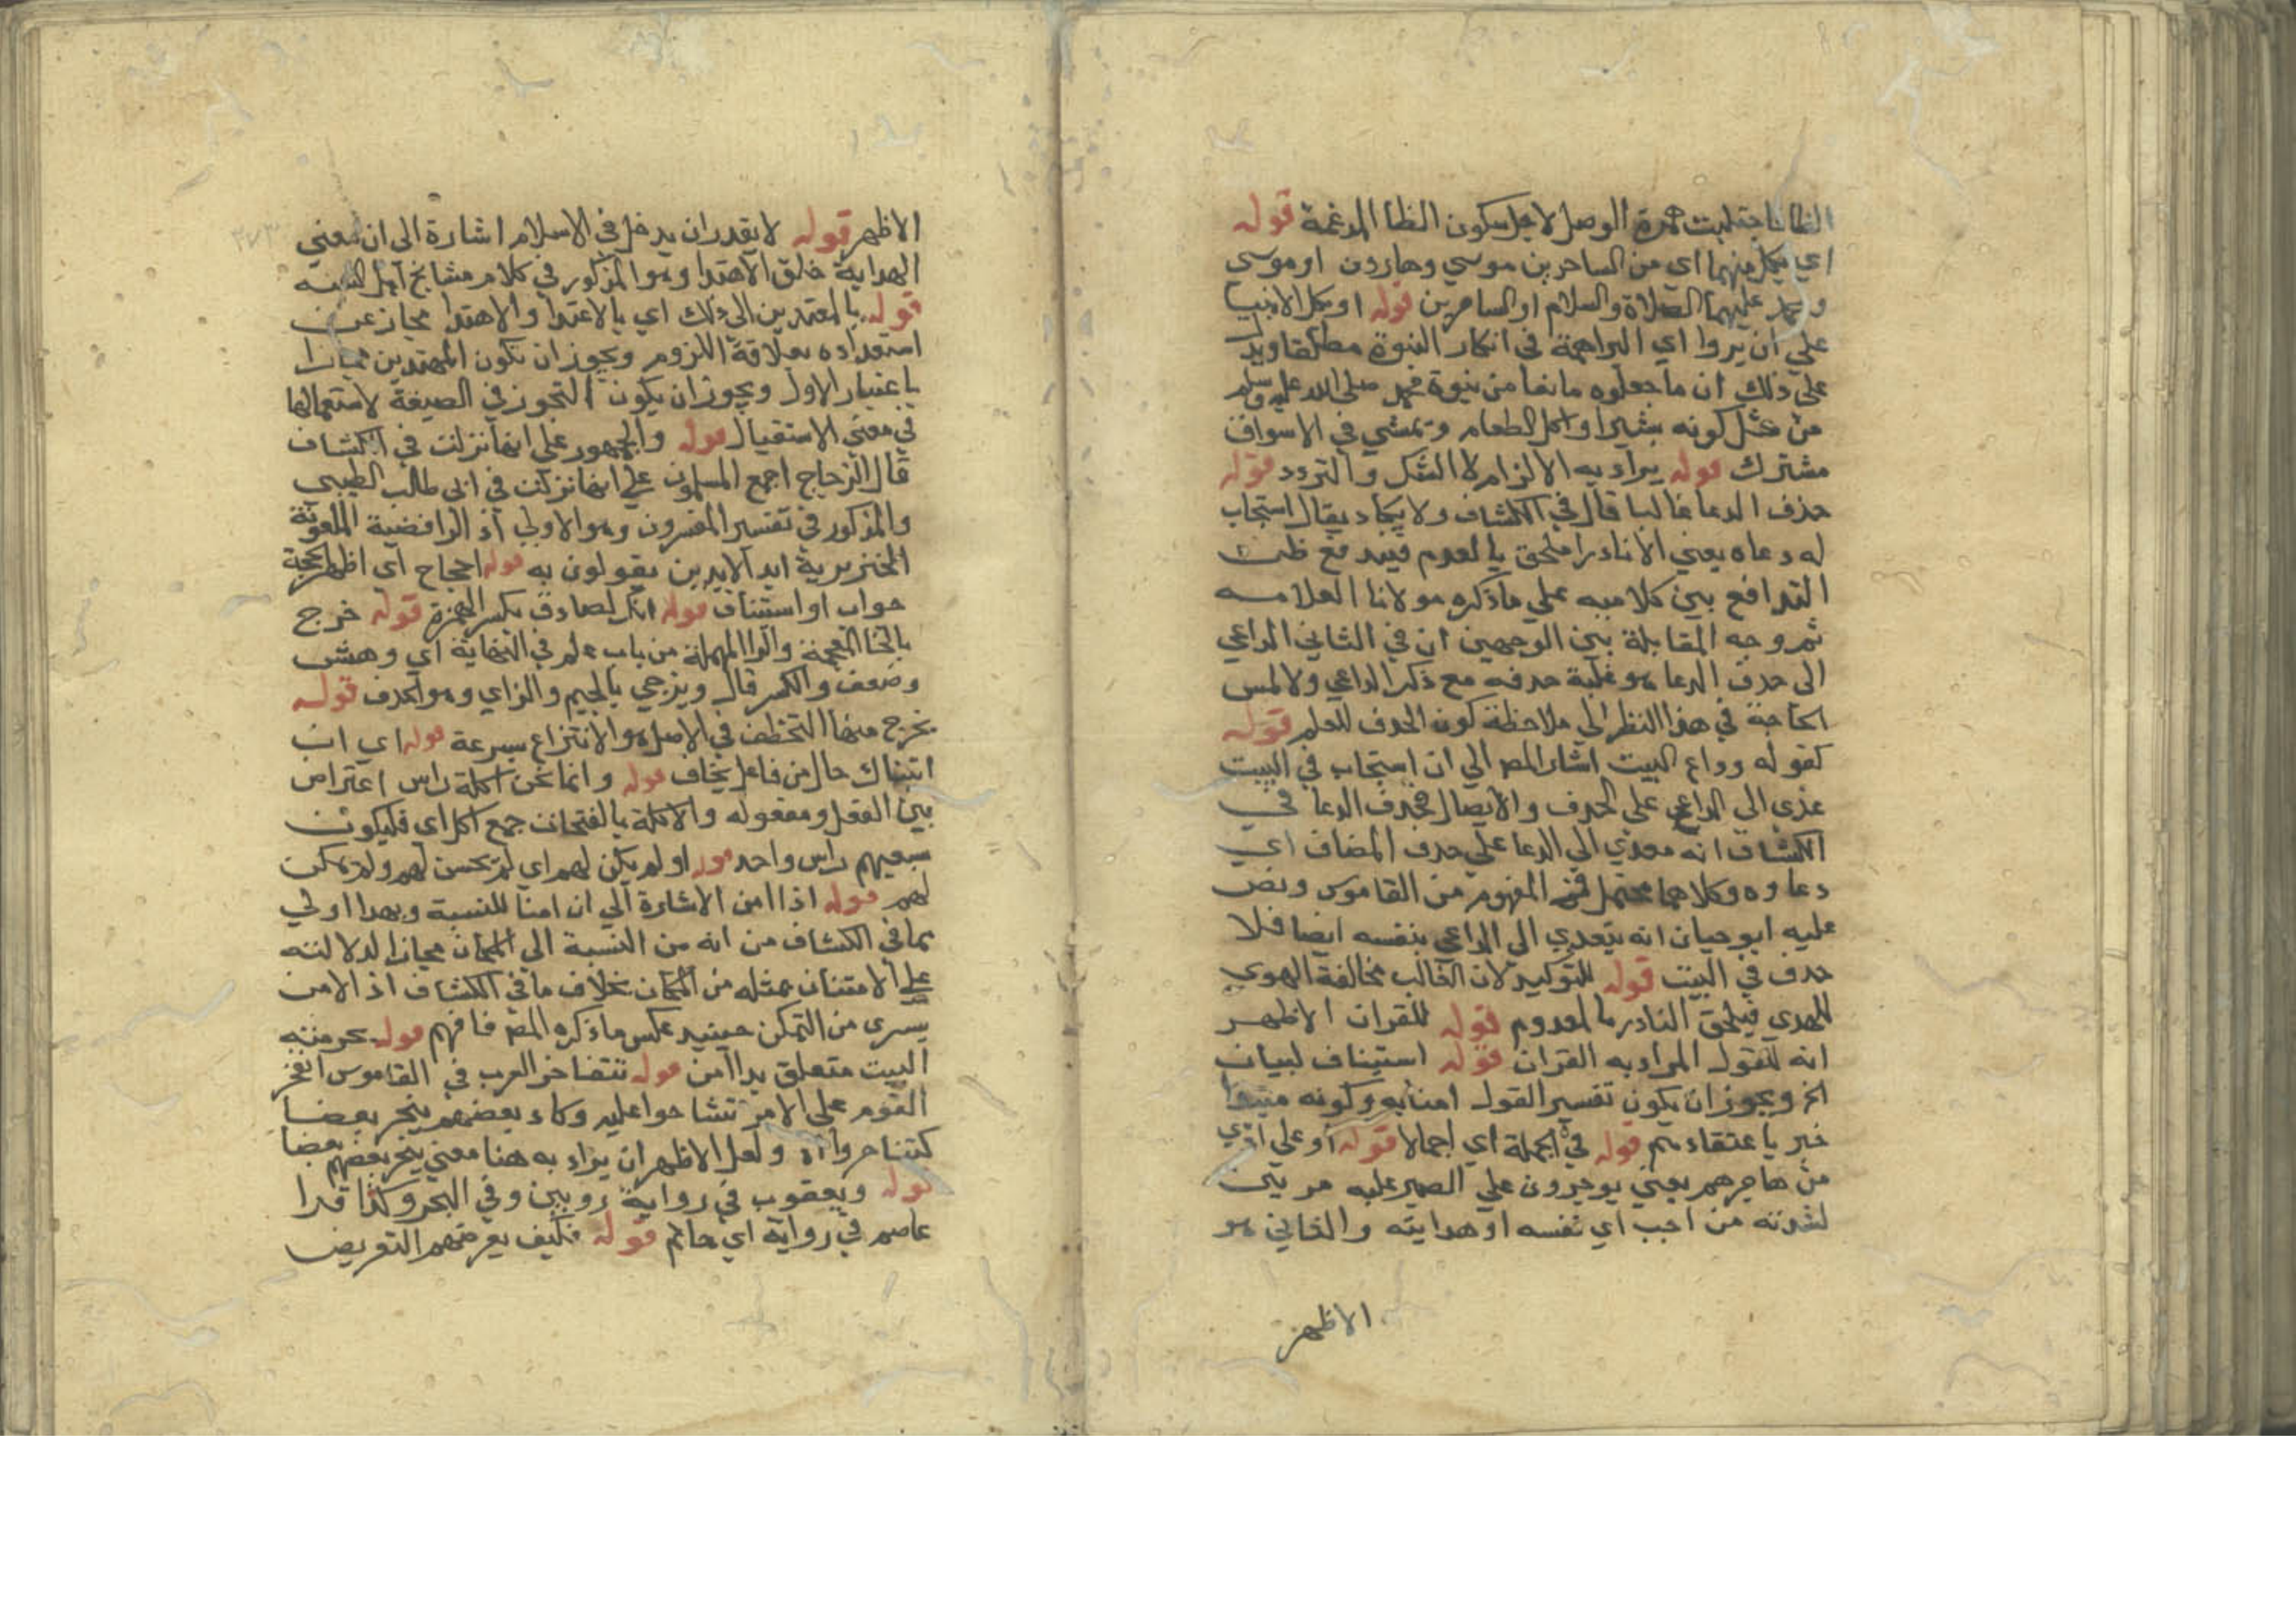 الظا فاجتلبت همزة الوصل لاجل سكون الظا المدغمة قوله
اي بكل منهما اي من الساحرين موسي وهارون او موسي
ومحمد عليهما الصلاة والسلام او الساحرين قوله او بكل الانبيا
علي ان يروا اي البراهمة في انكار النبوة مطلقا ويدل
علي ذلك ان ما جعلوه مانعا من نبوة محمد صلى الله عليه وسلم
من مثل كونه بشيرا واكل الطعام وتمشي في الاسواق
مشترك قوله يراد به الالزام لا الشك والتردد قوله
حذف الدعا غالبا قال في الكشاف ولا يكاد يقال استجاب
له دعاه يعني الا نادرا ملحق بالعدم فيندفع ظن
التدافع بين كلاميه علي ما ذكره مولانا العلامه
ثم وجه المقابلة بين الوجهين ان في الثاني الداعي
الى حذف الدعا هو غلبة حذفه مع ذكر الداعي ولا لمس
الحاجة في هذا النظر الي ملاحظة كون الحذف للعلم قوله
كقوله وداع البيت اشار المص الي ان استجاب في البيت
عدي الي الداعي علي الحذف والايصال فحذف الدعا في
الكشاف انه معدي الي الدعا علي حذف المضاف اي
دعاوه وكلاهما محتمل المفهوم من القاموس ونص
عليه ابو حيان انه يتعدي الي الداعي بنفسه ايضا فلا
حذف في البيت قوله للتوكيد لان الغالب مخالفة الهوي
للهدي فيلحق النادر بالمعدوم قوله للقران الاظهر
انه للقول المراد به القران قوله استيناف لبيان
الخ ويجوز ان يكون تفسير القول امنا به وكونه
خبر باعتقادهم قوله في الجملة اي اجمالا قوله او علي اذي
من هاجرهم يعني يوجرون علي الصبر عليه مرتين
لشدته من احب اي نفسه او هدايته والثاني هو
الاظهر
الاظهر قوله لا يقدر ان يدخل في الاسلام اشارة الى ان معني
الهداية خلق الاهتدا وهو المذكور في كلام مشايخ اهل السنه
قوله بالمعتدين الى ذلك اي بالاعتدا والاهتدا مجاز عن
استعداده بعلاقة اللزوم ويجوز ان تكون المهتدين مجازا
باعتبار الاول ويجوز ان يكون التجوز في الصيغة لاستعمالها
في معني الاستقبال قوله والجمهور علي انها نزلت في الكشاف
قال الزجاج اجمع المسلمون علي انها نزلت في ابي طالب الطيبي
والمذكور في تفسير المفسرون وهو الاولي اذ الرافضية الملعونة
الخنزيرية ابد الابدين يقولون به قوله احجاج اي اظهر الحجة
جواب او استئناف قوله انك لصادق بكسر الهمزة قوله خرج
بالخا المعجمة والرا المهملة من باب علم في النهاية اي وهش
وضعف والكسر قال ويزجي بالجيم والزاي وهو الحذف قوله
نخرج منها التخطف في الاصل هو الانتزاع بسرعة قوله اي ان
اتبعناك حال من فاعل يخاف قوله وانما نحن اكلة راس اعتراض
بين الفعل ومفعوله والاكلة بالفتحات جمع اكل اي قليكون
سبعيهم راس واحد قوله او لم يكن لهم اي لم يحسن لهم ولم نمكن
لهم قوله اذا امن الاشارة الي ان امنا للنسبة وبهذا اولي
مما في الكشاف من انه من النسبة الي المكان مجازا لدلالته
علي الامتنان بمثله من المكان بخلاف ما في الكشاف اذ الامن
يسري من التمكن حينيد عكس ما ذكره المص فافهم قوله بحرمنه
البيت متعلق بذا امن قوله تتفاخر العرب في القاموس انفخر
القوم علي الامر تشاحوا عليه وكاد بعضهم ينحر بعضا
كتناحروا اه ولعل الاظهر ان يراد به هنا معني ينحر بعضهم بعضا
قوله ويعقوب في رواية رويس وفي البحر وكذا قرا
عاصم في رواية ابي حاتم قوله فكيف يعرضهم التعريض